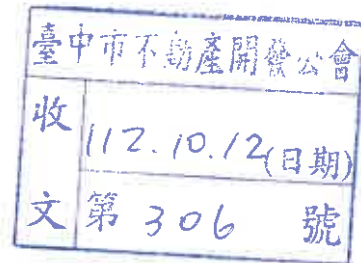 臺中市不動產開發公會
收文
112.10.12(日期)
第 306 號